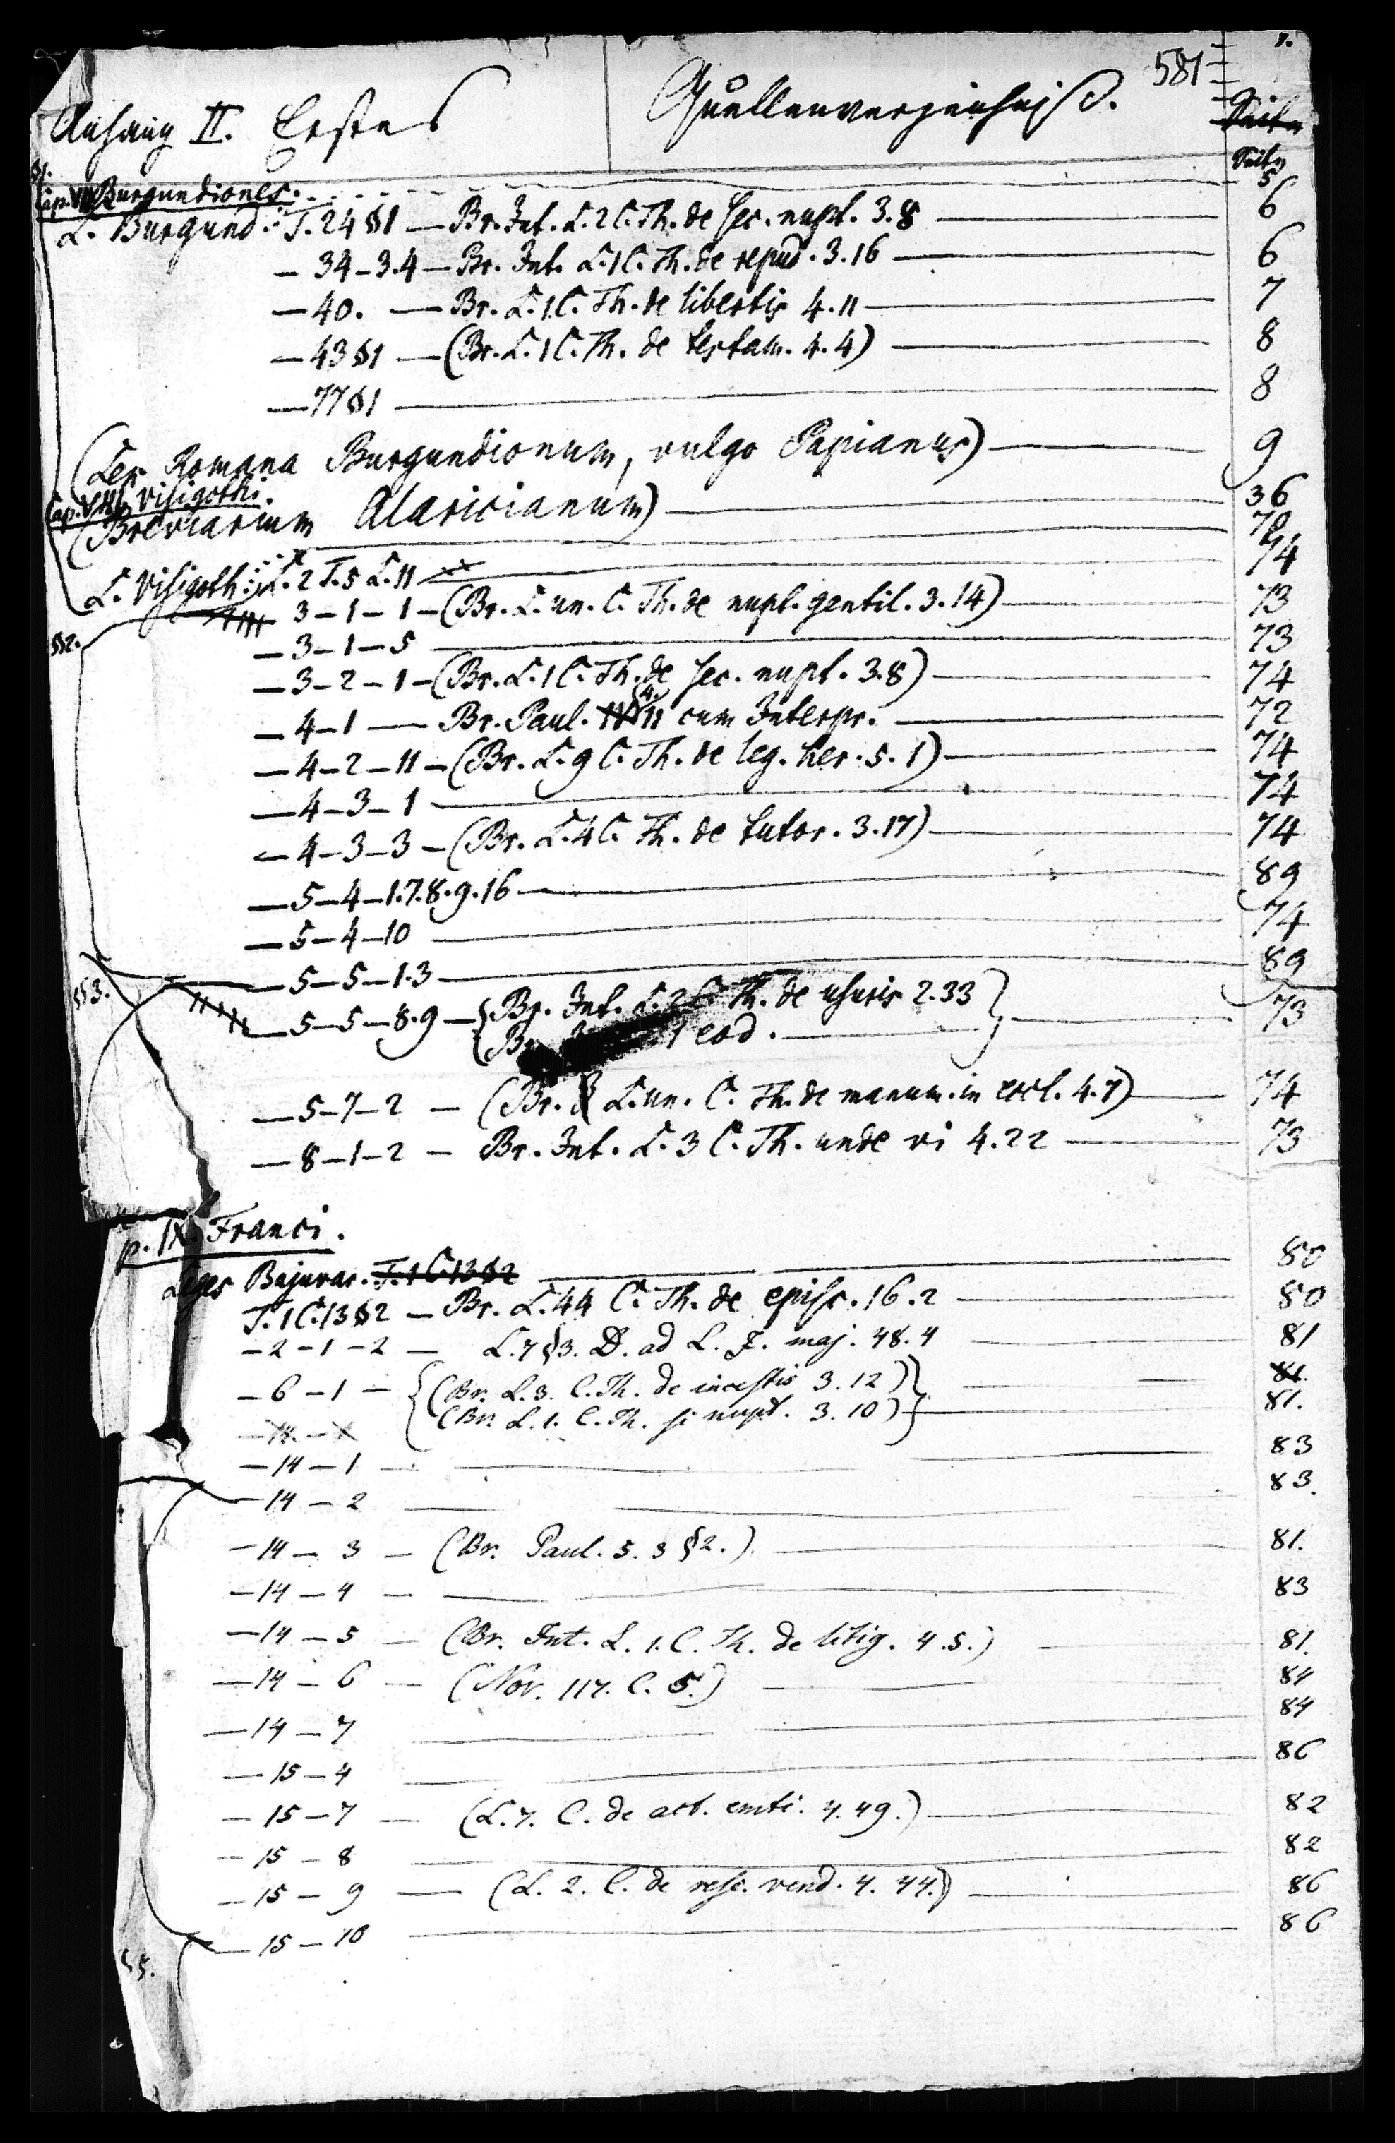 1.
581
Anhang II. Erstes Quellenverzeichniß.
Seite
Seite
§1.
Cap. VII Burgundiones. 5
L. Burgund. T. 24 §1 — Br. Int. L. 2 C. Th. de sec. nupt. 3.8 — 6
— 34 – 3.4 — Br. Int. L. 1 C. Th. de repud. 3.16 — 6
— 40. — Br. L. 1. C. Th. de libertis 4.11 — 7
— 43 §1 — (Br. L. 1 C. Th. de testam. 4.4) — 8
— 77 §1 — 8
(Lex Romana Burgundionum, vulgo Papianus) — 9
Cap. VIII Visigothi.
(Breviarium Alaricianum) — 36
70
L. Visigoth. L. 2 T. 5 L. 11 — 74
3 – 1 – 1 – (Br. L. un. C. Th. de nupt. gentil. 3.14) — 73
§2.
— 3 – 1 – 5 — 73
— 3 – 2 – 1 – (Br. L. 1 C. Th. de sec. nupt. 3.8) — 74
— 4 – 1 — Br. Paul. 4. 11 cum Interpr. — 72
— 4 – 2 – 11 – (Br. L. 9 C. Th. de leg. her. 5.1) — 74
— 4 – 3 – 1 — 74
— 4 – 3 – 3 – (Br. L. 4 C. Th. de tutor. 3.17) — 74
— 5 – 4 – 1.7.8.9.16 — 89
— 5 – 4 – 10 — 74
— 5 – 5 – 1.3 — 89
§3.
— 5 – 5 – 8.9 – {Br. Int. L. 2 C. Th. de usuris 2.33} — 73
Br. 1 eod.
— 5 – 7 – 2 – (Br. L. un. C. Th. de manum. in eccl. 4.7) — 74
— 8 – 1 – 2 – Br. Int. L. 3 C. Th. unde vi 4.22 — 73
p. IX Franci.
Leges Bajuvar. T. 1 C. 13 §2 — 80
T. 1 C. 13 §2 – Br. L. 44 C. Th. de episc. 16.2 — 80
— 2 – 1 – 2 — L. 7 §3. D. ad L. J. maj. 48.4 — 81
— 6 – 1 – {(Br. L. 3. C. Th. de incestis 3.12)} — 81.
(Br. L. 1. C. Th. si nupt. 3.10) — 81.
— 14 – 1 — 83
— 14 – 2 — 83.
— 14 – 3 – (Br. Paul. 5. 3 §2.) — 81.
— 14 – 4 — 83
— 14 – 5 – (Br. Int. L. 1. C. Th. de litig. 4.5.) — 81.
— 14 – 6 — (Nov. 117. C. 5.) — 84
— 14 – 7 — 84
— 15 – 4 — 86
— 15 – 7 — (L. 7. C. de act. emti. 4.49.) — 82
— 15 – 8 — 82
— 15 – 9 — (L. 2. C. de resc. vend. 4.44.) — 86
— 15 – 10 — 86
§5.